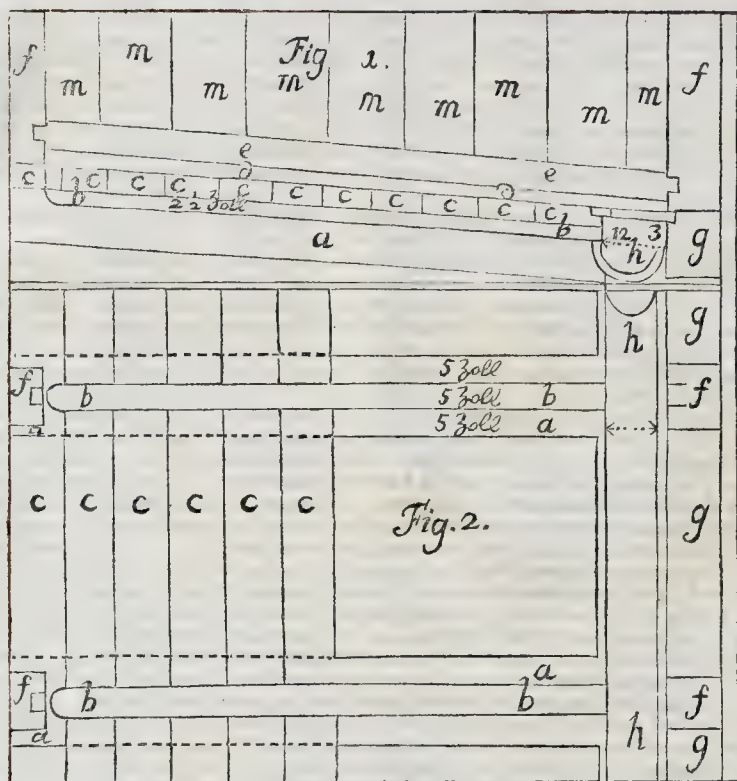 f m m m Fig 1. m m m m m m f
e e
c c c c c c c c c c c
2 1/2 Zoll b
a 12 3 h g
h g
5 Zoll
f b 5 Zoll b f
a 5 Zoll a
c c c c c c Fig. 2. g
a
f b b f
a h g